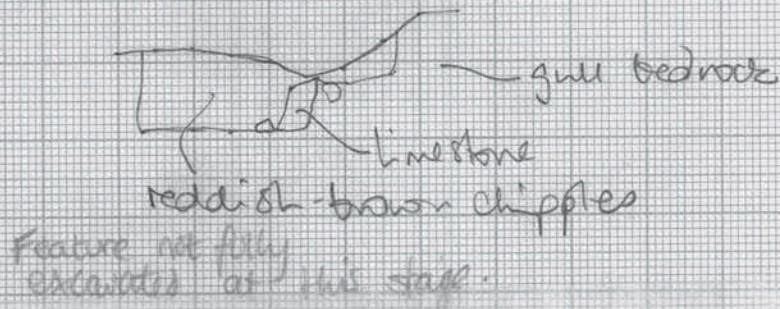 gull bedrock
limestone
reddish-brown chipples
Feature not fully
excavated at this stage.